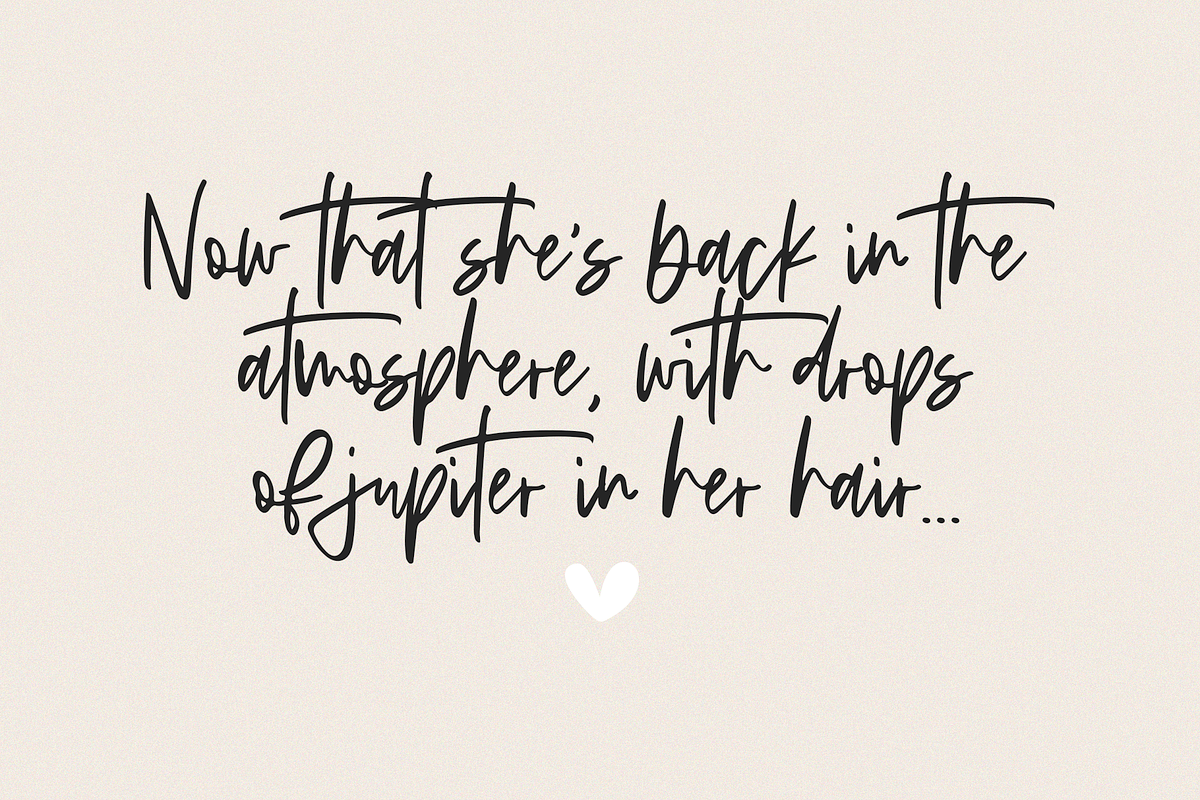 Now that she's back in the
atmosphere, with drops
of jupiter in her hair...